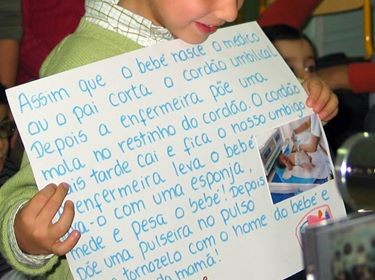 Assim que o bebé nasce o médico
ou o pai corta o cordão umbilical
Depois a enfermeira põe uma
mola no restinho do cordão. O cordão
mais tarde cai e fica o nosso umbigo
enfermeira leva o bebé
com uma esponja,
mede e pesa o bebé! Depois
põe uma pulseira no pulso
tornozelo com o nome do bebé e
da mamã!